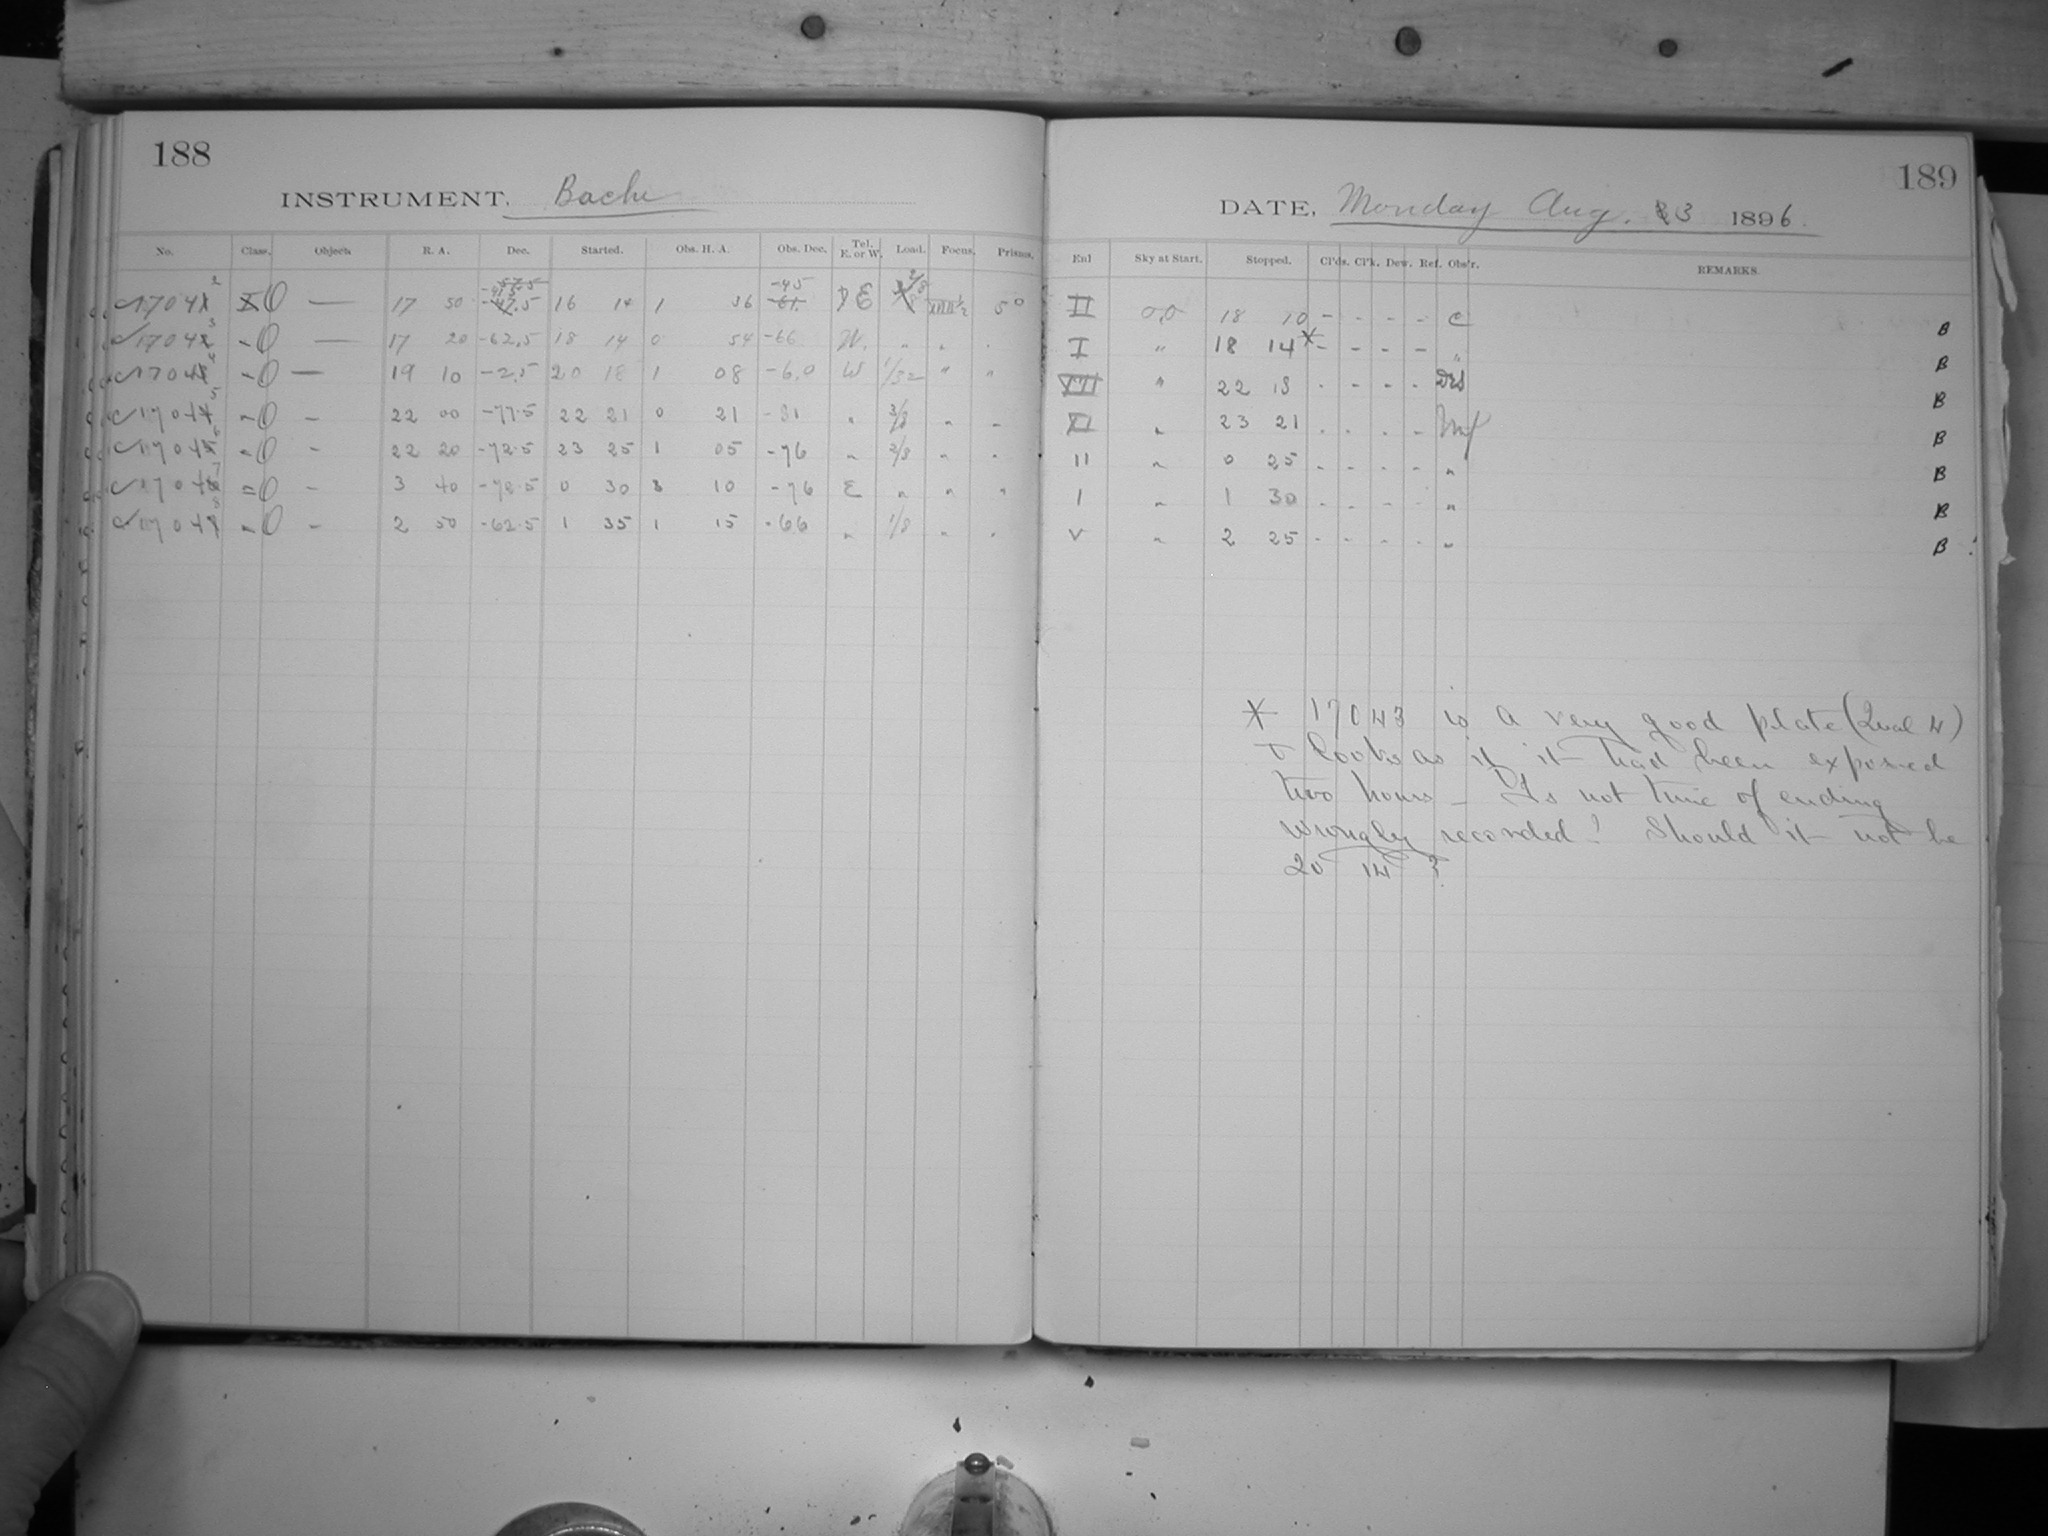 188
INSTRUMENT. Bache
No. Class. Object. R. A. Dec. Started. Obs. H. A. Obs. Dec. Tel. E. or W. Load. Focus. Prisms.
17 50 16 14 1 36 -45 E 5°
17 20 -62.5 18 14 0 54 -66 W. " "
19 10 -2.5 20 18 1 08 -6.0 W 1/32 " "
22 00 -77.5 22 21 0 21 -81 " 3/8 " "
22 20 -72.5 23 25 1 05 -76 " 2/8 " "
3 40 0 30 3 10 -76 E " " "
2 50 -62.5 1 35 1 15 -66 " 1/8 " "
189
DATE, Monday Aug. 3 1896.
Enl Sky at Start. Stopped. Cl'ds. Cl'k. Dew. Ref. Obs'r. REMARKS.
II 18 10 - - - - C B
I " 18 14* - - - - " B
" 22 18 - - - - B
XI " 23 21 - - - - B
II " 0 25 - - - - " B
I " 1 30 - - - - " B
V " 2 25 - - - - " B
* 17043 is a very good plate (Qual 4)
& looks as if it had been exposed
two hours - Is not time of ending
wrongly recorded? Should it not be
20 14 ?